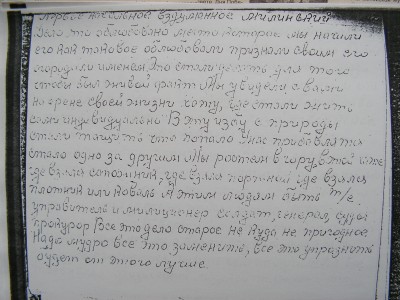 Первое начальное вздуманное
Дело это облюбовано место которое мы начали
его как таковое облюбовали признали своим его
городали именем Это стали делать для того
чтобы был живой факт Мы увидели с вами
на арене своей жизни хату, где стали жить
сами индивидуально В эту избу с природы
стали тащить что попало У нас прибавлятся
стало одно за другим Мы ростем в гору, в этой хате
где взялся сапожник, где взялся портной где взялся
плотник или коваль, А этим людям быть т/е.
управитель и милиционер солдат, генерал, судья
прокурор Все это дело старое не куда не пригодное
Надо мудро все это заменить, все это упразнить
будет от этого лучше.